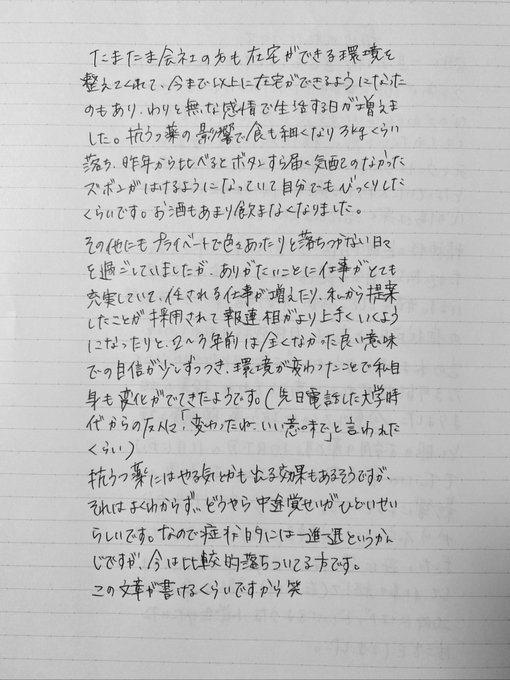 たまたま会社の方も在宅ができる環境を
整えてくれて、今まで以上に在宅ができるようになった
のもあり、わりと無な感情で生活する日が増えま
した。抗うつ薬の影響で食も細くなり3kgくらい
落ち、昨年から比べるとボタンすら届く気配のなかった
ズボンがはけるようになっていて自分でもびっくりした
くらいです。お酒もあまり飲まなくなりました。
その他にもプライベートで色々あったりと落ちつかない日々
を過ごしていましたが、ありがたいことに仕事がとても
充実していて、任される仕事が増えたり、私から提案
したことが採用されて報連相がより上手くいくよう
になったりと、2〜3年前は全くなかった良い意味
での自信が少しずつつき、環境が変わったことで私自
身も変化がでてきたようです。(先日電話した大学時
代からの友人に「変わったね。いい意味で」と言われた
くらい)
抗うつ薬にはやる気とかも出る効果もあるそうですが、
それはよくわからず、どうやら中途覚せいがひどいせい
らしいです。なので症状的には一進一退というかん
じですが、今は比較的落ちついてる方です。
この文章が書けるくらいですから笑